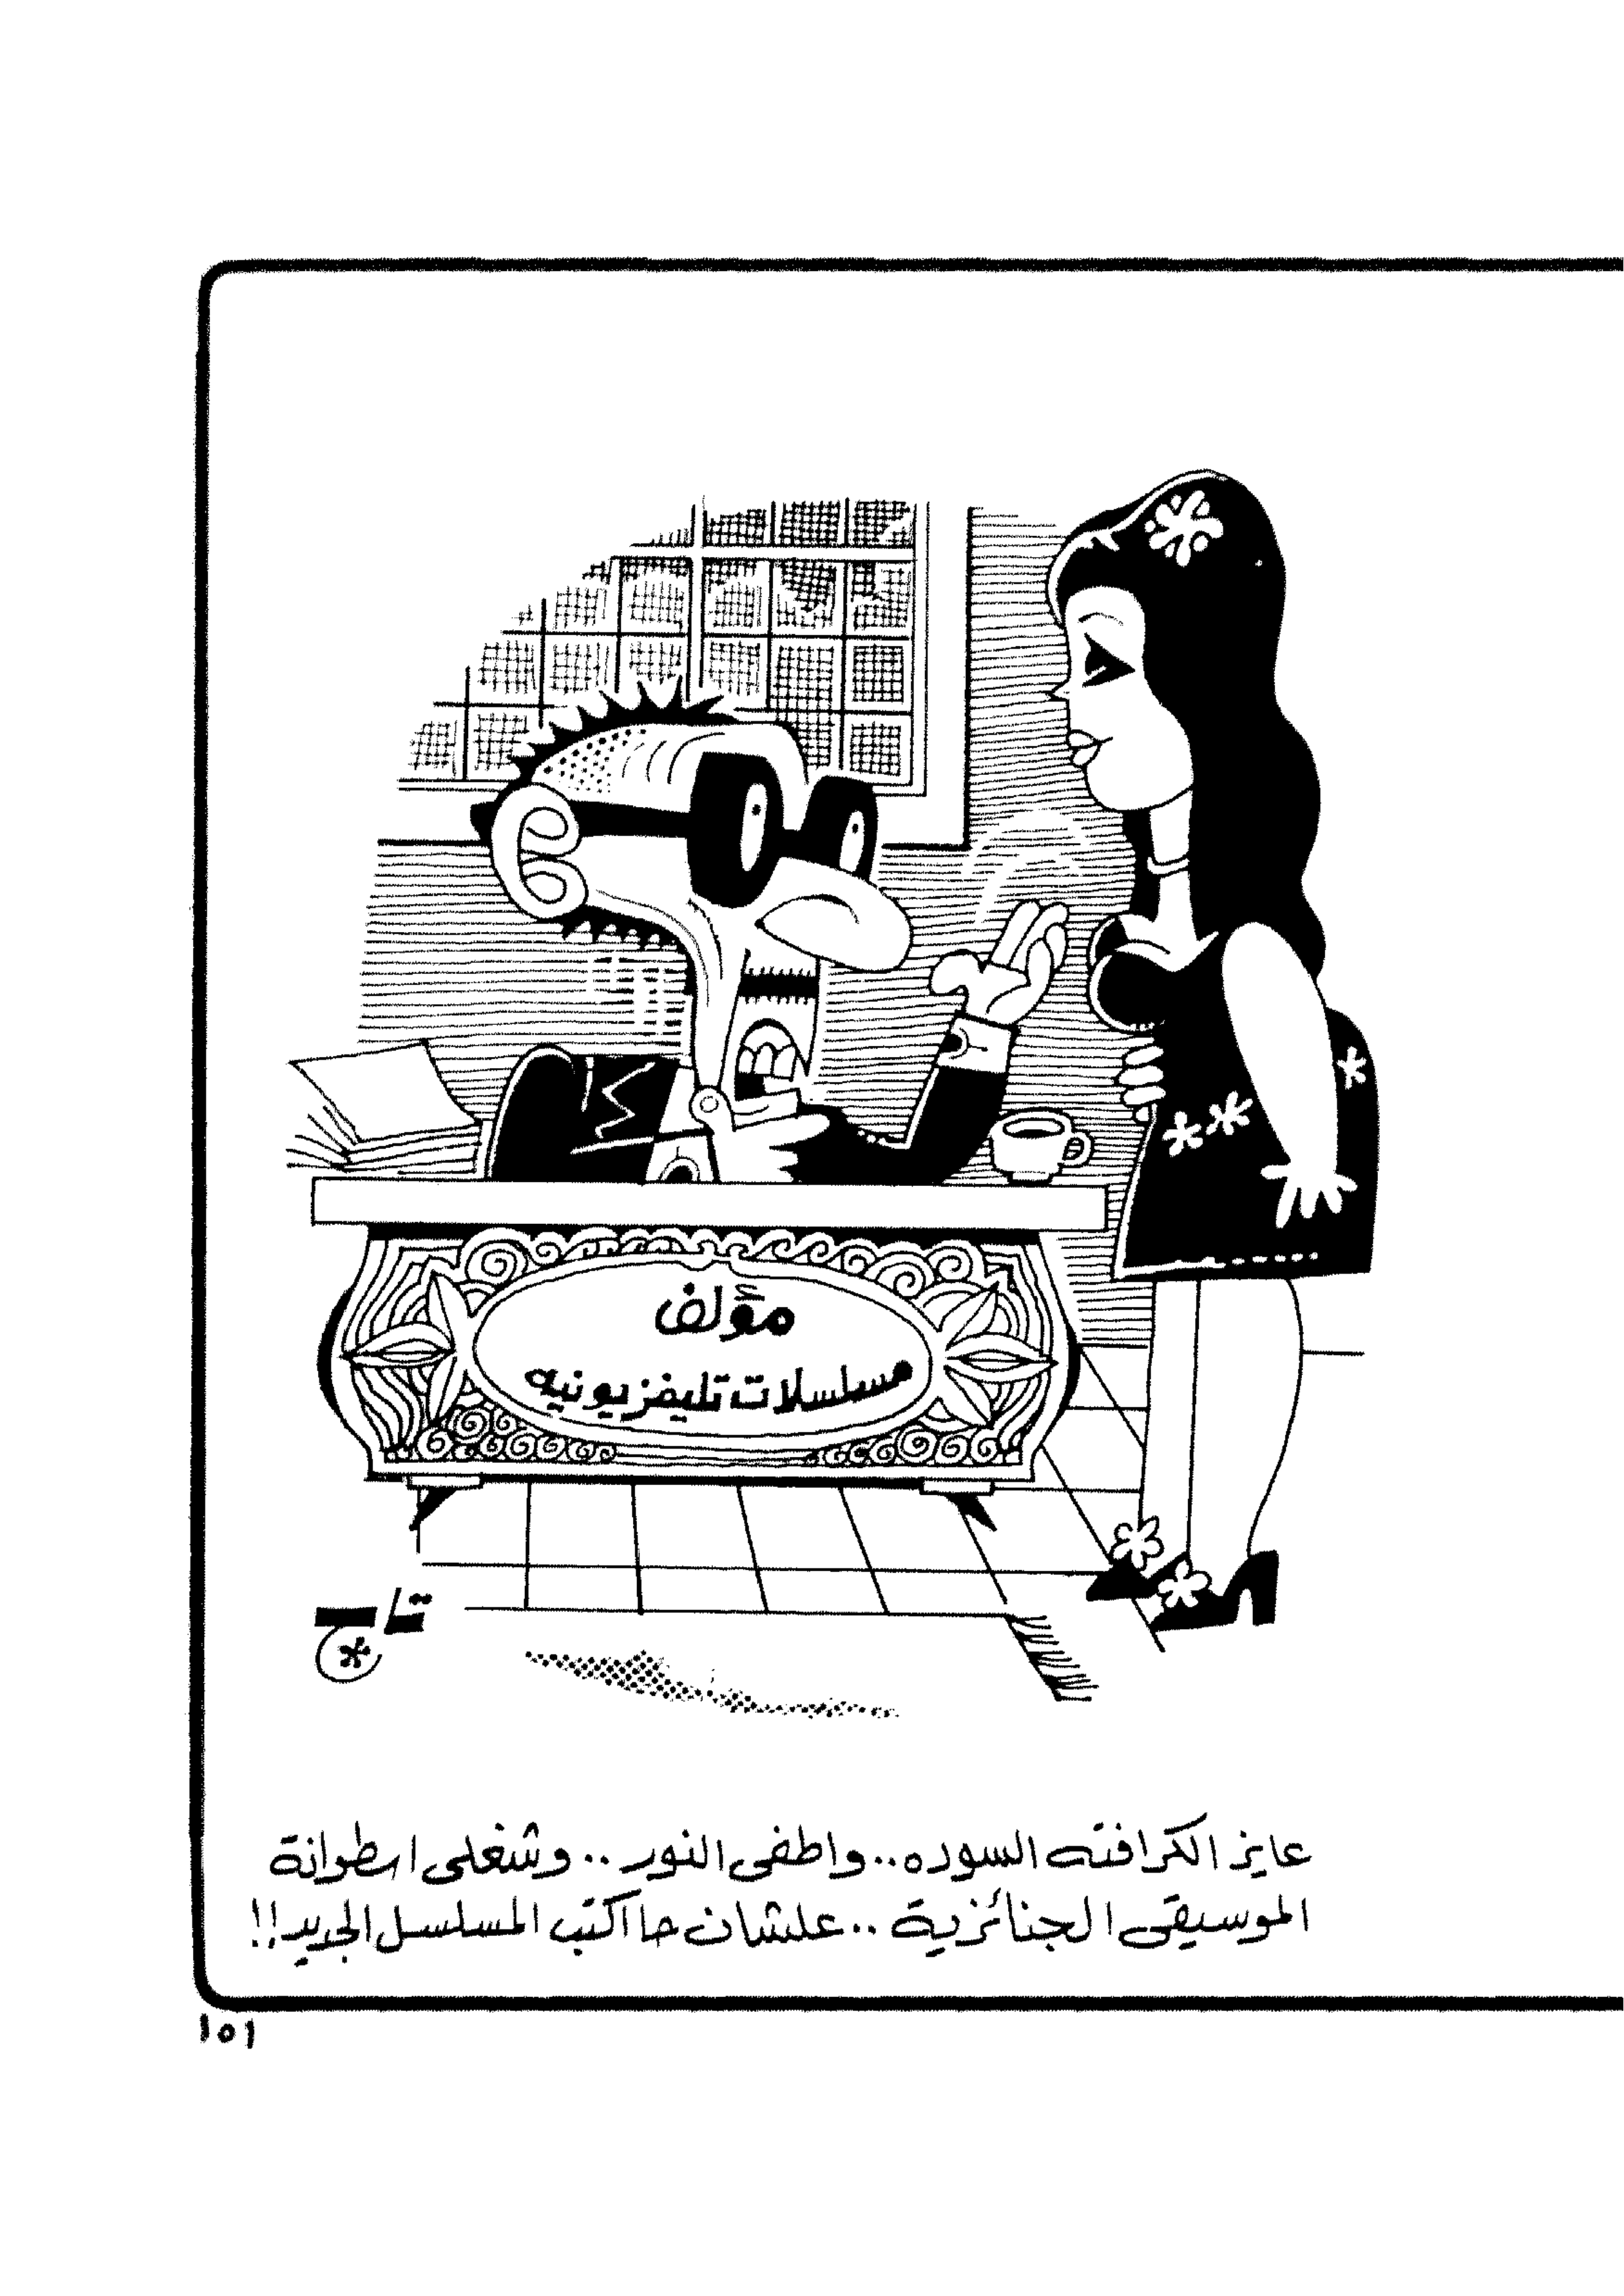 مؤلف
مسلسلات تليفزيونيه
تاج
عايز الكرافته السوده.. واطفى النور.. وشغلى اسطوانة
الموسيقى الجنائزية.. علشان حااكتب المسلسل الجديد!!
١٥١